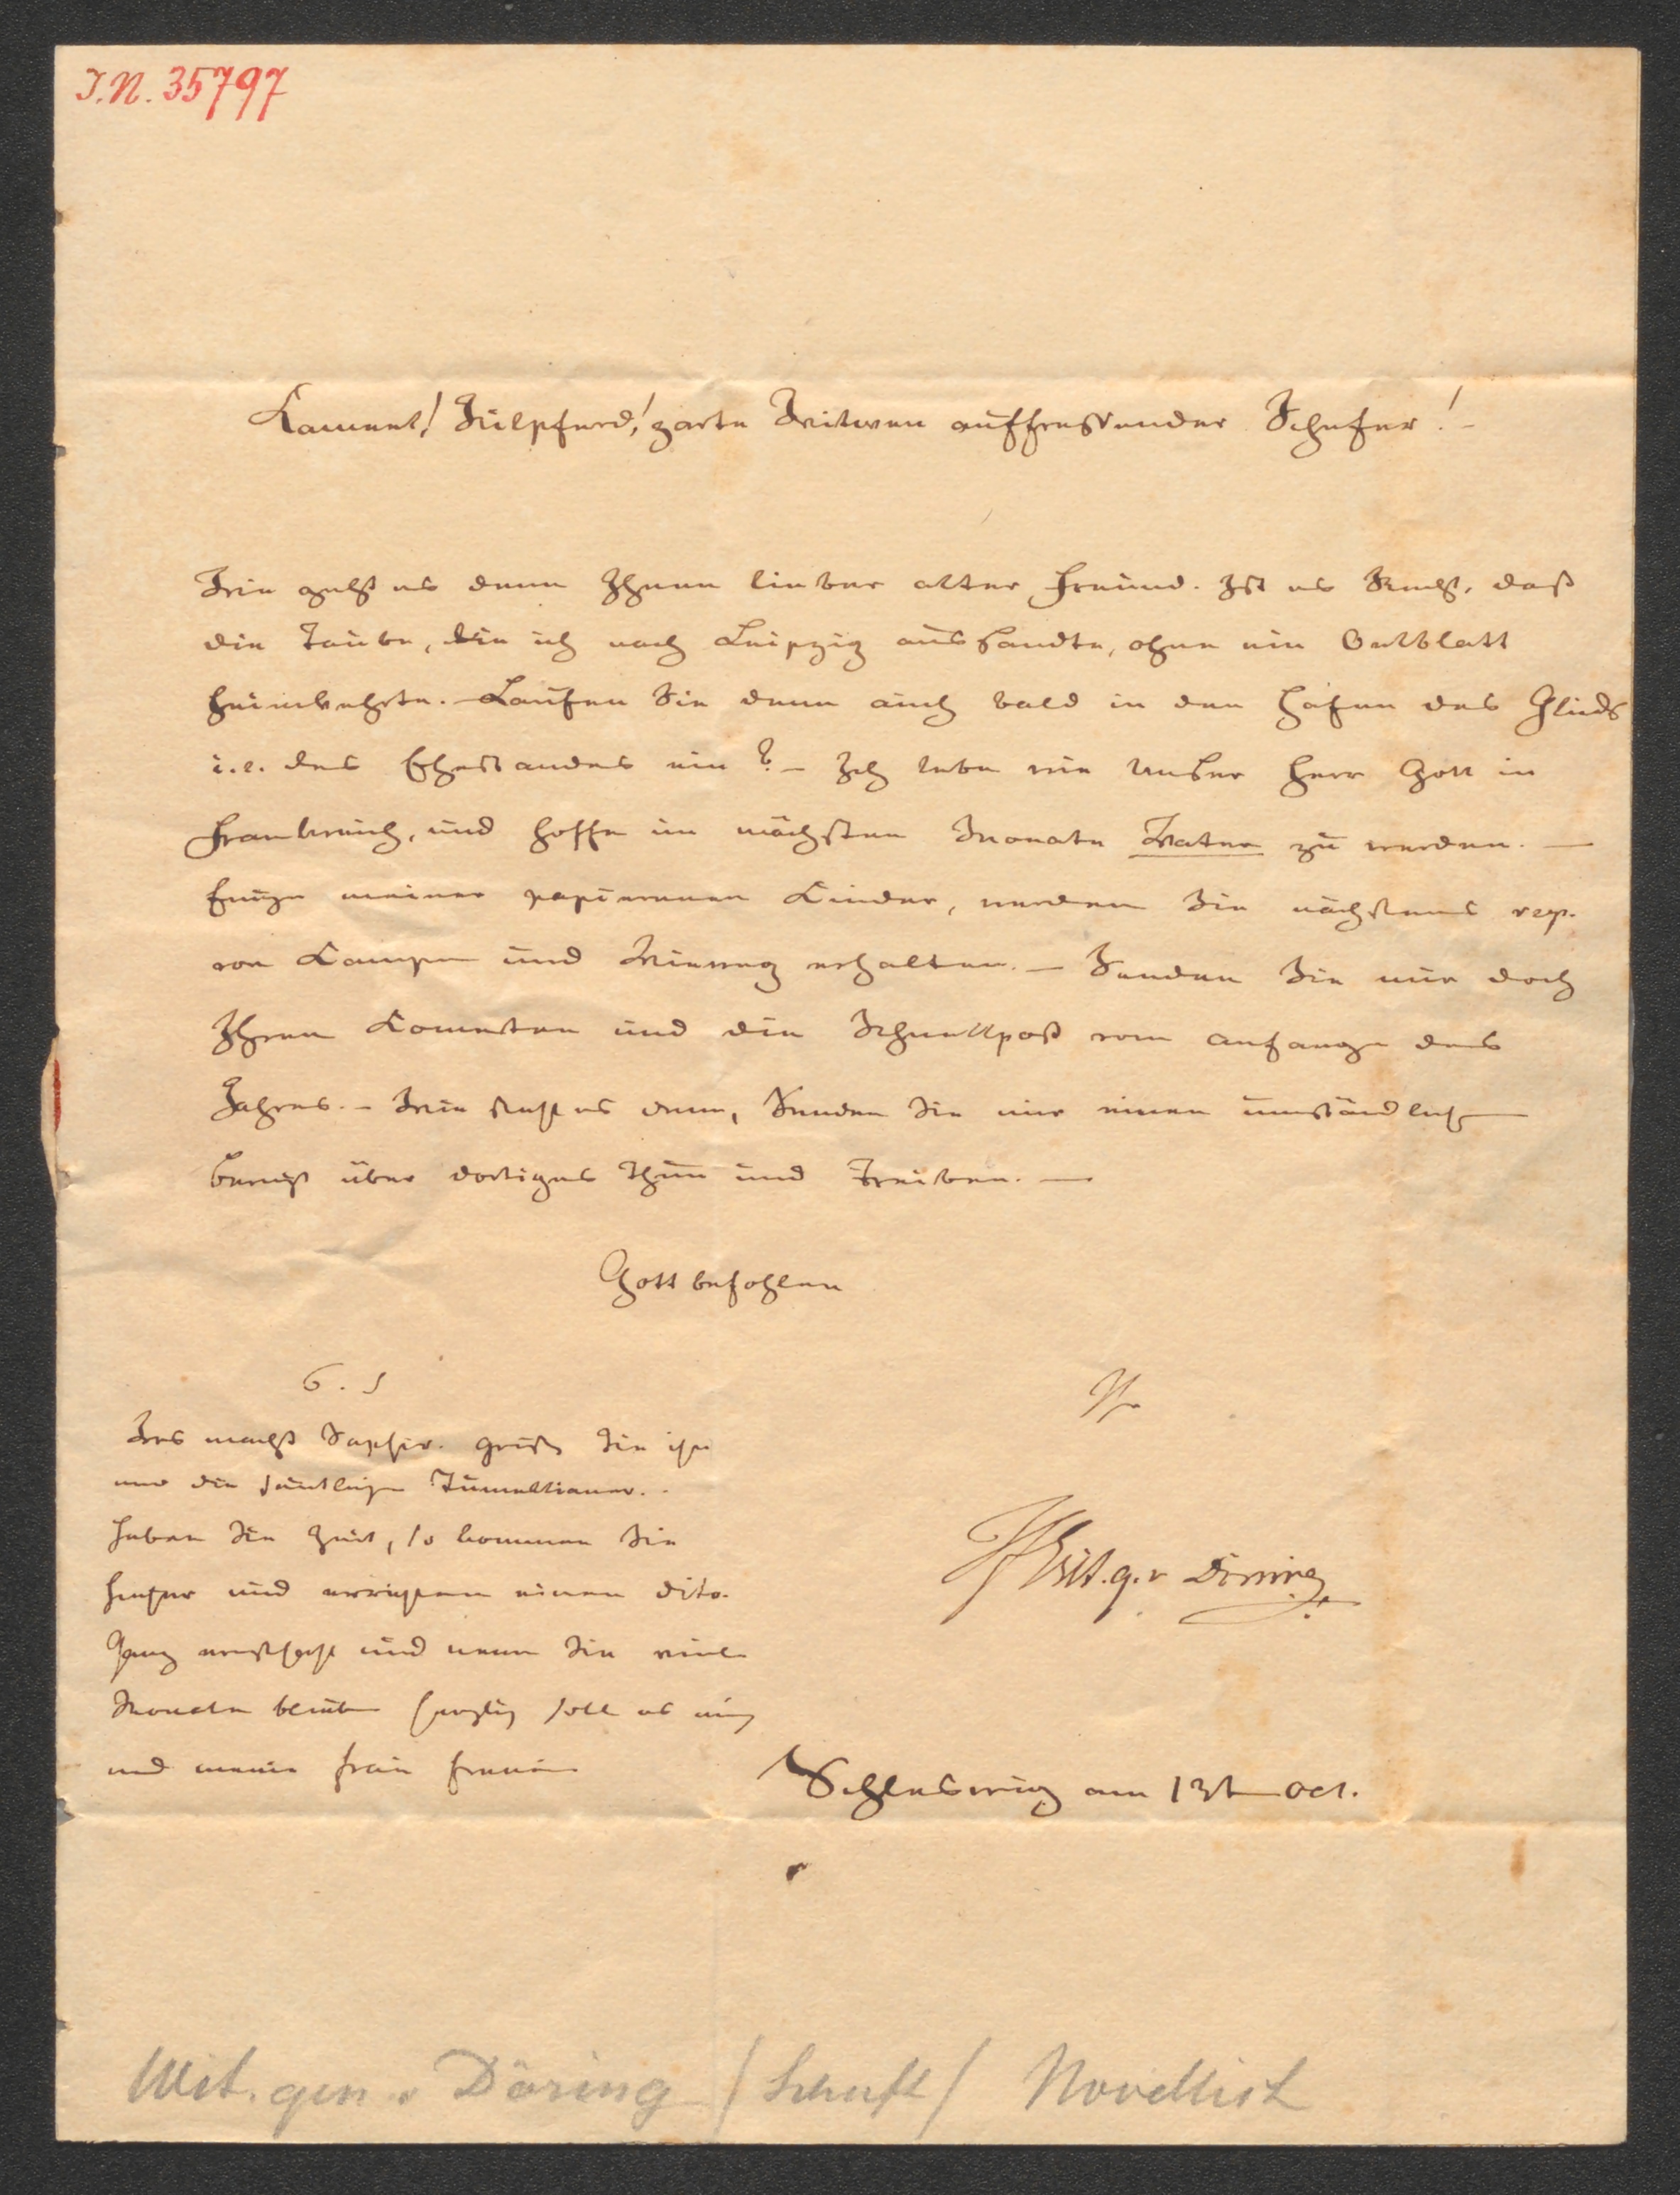 I.N. 35797
Kameel! Nilpferd! zarte Witwen auffressender Schefer! –
Wie geht es denn Ihnen lieber alter Freund. Ist es Recht, daß
die Taube, die ich nach Leipzig aussandte, ohne ein Oelblatt
heimkehrte. – Laufen Sie denn auch bald in den Hafen des Glücks
i.e. des Ehestandes ein? – Ich lebe wie unser Herr Gott in
Frankreich, und hoffe im nächsten Monate Vater zu werden. –
Einige meiner papiernenen Kinder, werden Sie nächstens resp.
von Campe und Vieweg erhalten. – Senden Sie mir doch
Ihren Kometen und die Schnellpost vom Anfange des
Jahres. – Wie steht es denn, Senden Sie mir einen umständlichen
Bericht über dortiges Thun und Treiben. –
Gott befohlen
Ihr
Was macht Saphir. Grüßen Sie ihn
und die sämtlichen Tunnelianer. –
Haben Sie Zeit, so kommen Sie
hieher und errichten einen dito.
Ganz ernsthaft und wenn Sie viele
Monate bleiben herzlich soll es mich
und meine Frau freuen
Wit. g. v Dörring
Schleswig am 13t Oct.
Wit. gen. v Döring / Schuft / Novellist